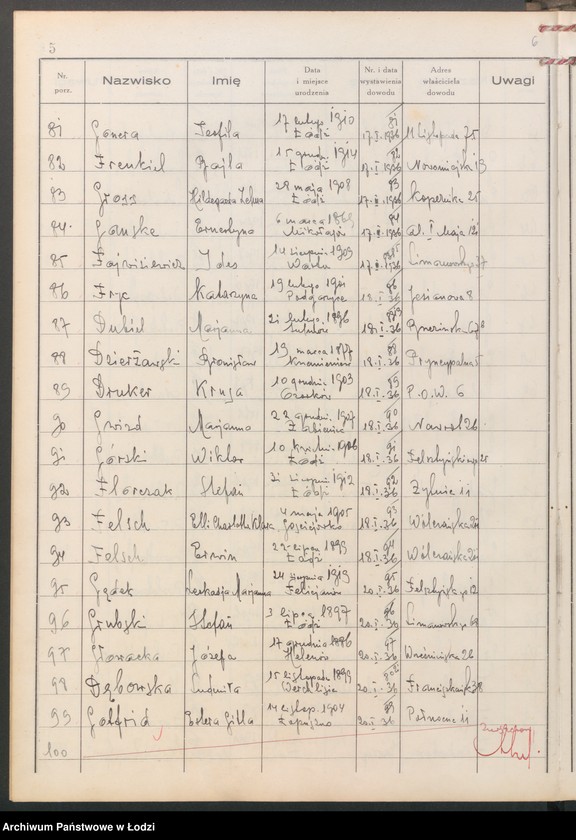 5
6
Nr. porz. Nazwisko Imię Data i miejsce urodzenia Nr. i data wystawienia dowodu Adres właściciela dowodu Uwagi
81 Gonera Teofila 17 lutego 1910 Łódź 81 17.I.1936 11 Listopada 75
82 Frenkiel Bajla 15 grudn. 1914 Łódź 82 17.I.1936 Nowomiejska 19
83 Gross Hildegarda 28 maja 1908 Łódź 83 17.I.1936 Kopernika 25
84. Ganske Ernestyna 6 marca 1869 Mikołajów 84 17.I.1936 al. I Maja
85 Ides 14 sierpnia 1909 Warta 85 17.I.1936 Limanowskiego 37
86 Fryc Katarzyna 19 lutego 1901 86 18.I.1936 8
87 Dukiel Marjanna 21 lutego 1896 18.I.36
88 Dzierżawski Bronisław 19 marca 1877 88 18.I.36 Pryncypalna
89 Druker Krusa 10 grudn. 1903 Ozorków 89 18.I.36 P.O.W. 6
90 Gwizd Marjanna 22 grudni. 1927 90 18.I.36 Nawrot 26
91 Górski Wiktor 10 1906 Łódź 91 18.I.36 Felsztyńskiego 21
92 Florczak Stefan 31 sierpni 1912 Łódź 92 18.I.36 Żytnia 11
93 Felsch Elli Charlotte Klara 4 maja 1905 93 18.I.36 Wólczańska
94 Felsch Erwin 22 lipca 1899 Łódź 94 18.I.36 Wólczańska
95 Gądek Leokadja Marjanna 24 sierpnia 1919 Felicjanów 95 20.I.36 Felsztyńskiego 12
96 Grubski Stefan 3 lipca 1897 Łódź 96 20.I.36 Limanowskiego 69
97 Głowacka Józefa 17 grudnia 1886 Helenów 97 20.I.36 Wrześnińska 26
98 Dąbowska Ludmiła 15 listopada 1899 98 20.I.36 Franciszkańska 38
99 Gotfrid Estera Gitla 14 listop. 1904 99 20.I.36 Północna 11
100
Archiwum Państwowe w Łodzi